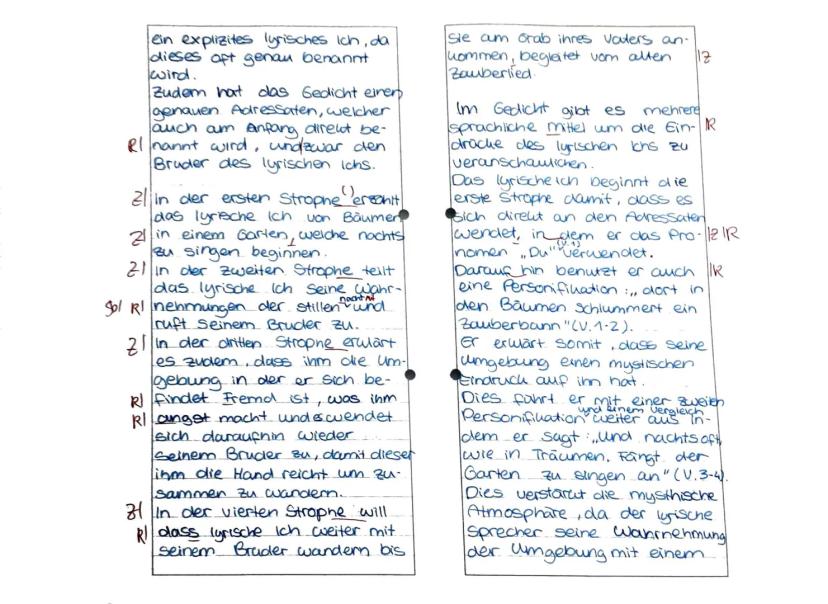 ein explizites lyrisches Ich, da
dieses oft genau benannt
wird.
Zudem hat das Gedicht einen
genauen Adressaten, welcher
auch am Anfang direkt be-
R| nannt wird, undzwar den
Bruder des lyrischen Ichs.
Z| In der ersten Strophe () erzählt
das lyrische Ich von Bäumen
Z| in einem Garten, welche nachts
zu singen beginnen.
Z| In der zweiten Strophe teilt
das lyrische Ich seine Wahr-
R| nehmungen der stillen Nacht mit und
ruft seinem Bruder zu.
Z| In der dritten Strophe erklärt
es zudem, dass ihm die Um-
gebung in der er sich be-
R| findet Fremd ist, was ihm
R| angst macht und es wendet
sich daraufhin wieder
seinem Bruder zu, damit dieser
ihm die Hand reicht um zu-
sammen zu wandern.
Z| In der vierten Strophe will
R| dass lyrische Ich weiter mit
seinem Bruder wandern bis
sie am Grab ihres Vaters an-
kommen, begleitet vom alten |Z
Zauberlied.
Im Gedicht gibt es mehrere
sprachliche Mittel um die Ein- |R
drücke des lyrischen Ichs zu
veranschaulichen.
Das lyrische ich beginnt die
erste Strophe damit, dass es
sich direkt an den Adressaten
wendet, in dem er das Pro- |Z |R
nomen „Du" (V.1) verwendet.
Darauf hin benutzt er auch |R
eine Personifikation: „dort in
den Bäumen schlummert ein
Zauberbann" (V.1-2).
Er erklärt somit, dass seine
Umgebung einen mystischen
Eindruck auf ihn hat.
Dies führt er mit einer zweiten
Personifikation und einem Vergleich weiter aus in-
dem er sagt: „Und nachts oft,
wie in Träumen, Fängt der
Garten zu singen an" (V.3-4).
Dies verstärkt die mysthische
Atmosphäre, da der lyrische
Sprecher seine Wahrnehmung
der Umgebung mit einem